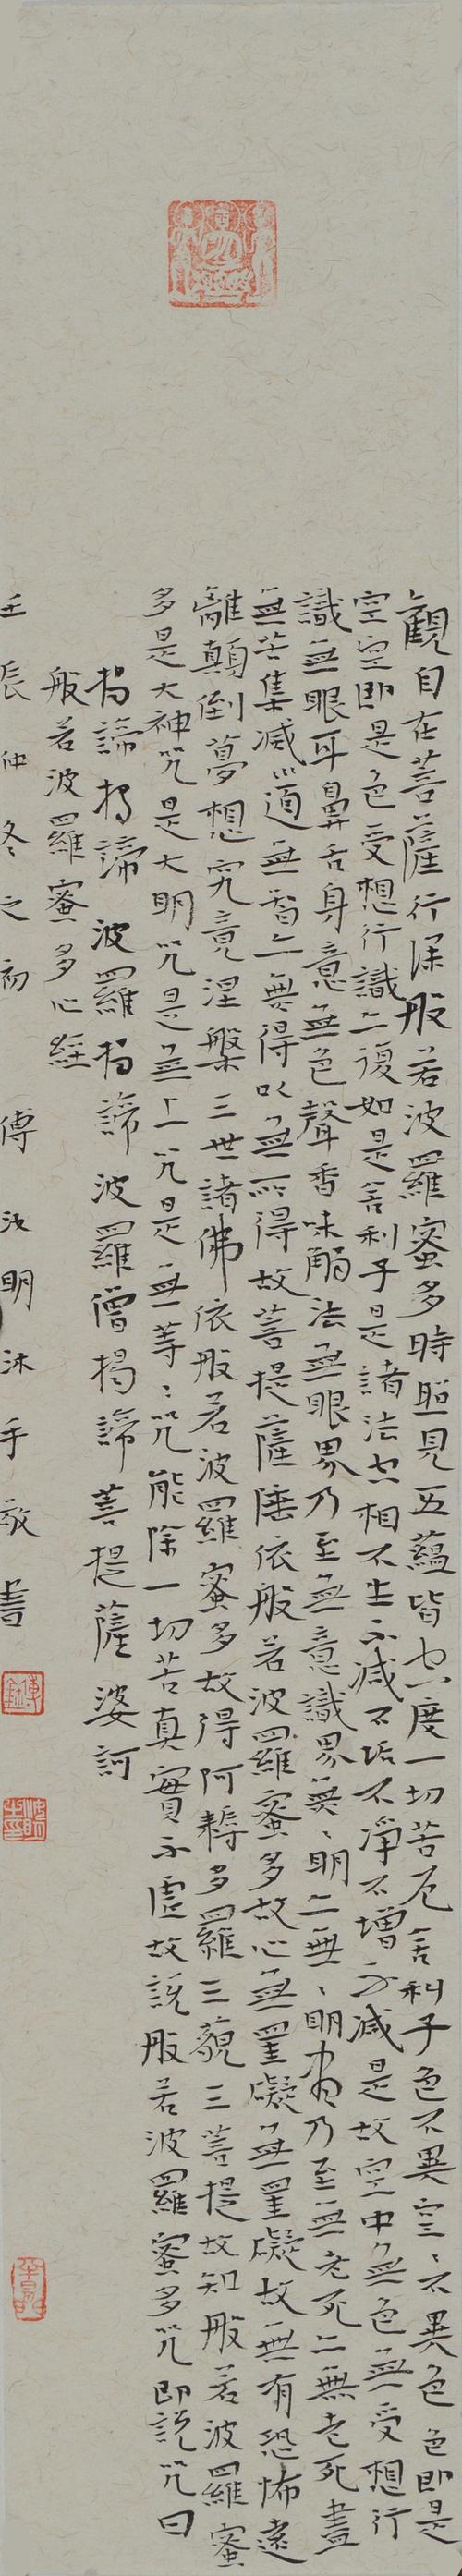 觀自在菩薩行深般若波羅蜜多時照見五蘊皆空度一切苦厄舍利子色不異空〻不異色色即是
空空即是色受想行識亦復如是舍利子是諸法空相不生不滅不垢不淨不增不減是故空中無色無受想行
識無眼耳鼻舌身意無色聲香味觸法無眼界乃至無意識界無〻明亦無〻明盡乃至無老死亦無老死盡
無苦集滅道無智亦無得以無所得故菩提薩埵依般若波羅蜜多故心無罣礙無罣礙故無有恐怖遠
離顛倒夢想究竟涅槃三世諸佛依般若波羅蜜多故得阿耨多羅三藐三菩提故知般若波羅蜜
多是大神咒是大明咒是無上咒是無等〻咒能除一切苦真實不虛故說般若波羅蜜多咒即說咒曰
揭諦揭諦 波羅揭諦 波羅僧揭諦 菩提薩婆訶
般若波羅蜜多心經
壬辰仲冬之初 傅汝明沐手敬書